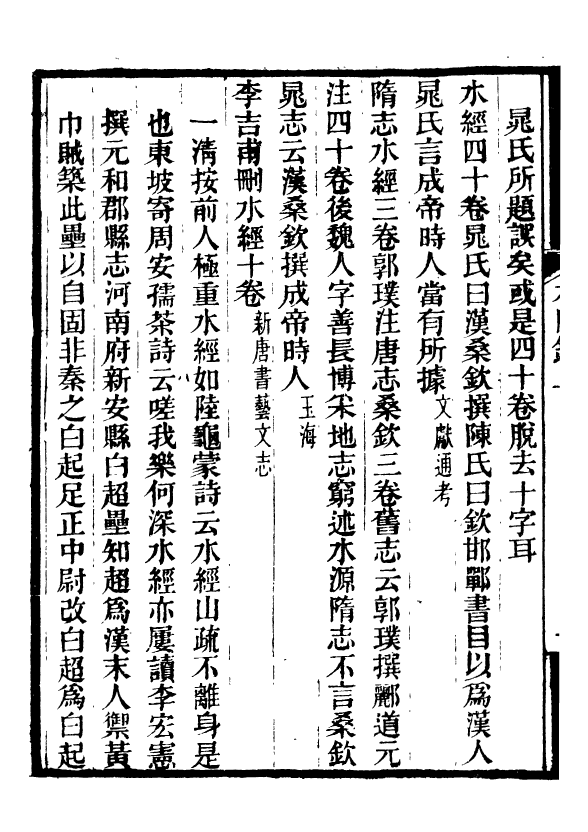 晁氏所題誤矣或是四十卷脫去十字耳
水經四十卷晁氏曰漢桑欽撰陳氏曰欽邯鄲書目以爲漢人
晁氏言成帝時人當有所據文獻通考
隋志水經三卷郭璞注唐志桑欽三卷舊志云郭璞撰酈道元
注四十卷後魏人字善長博采地志窮述水源隋志不言桑欽
晁志云漢桑欽撰成帝時人玉海
李吉甫刪水經十卷新唐書藝文志
一清按前人極重水經如陸龜蒙詩云水經山疏不離身是
也東坡寄周安孺茶詩云嗟我樂何深水經亦屢讀李宏憲
撰元和郡縣志河南府新安縣白超壘知超爲漢末人禦黃
巾賊築此壘以自固非秦之白起足正中尉改白超爲白起